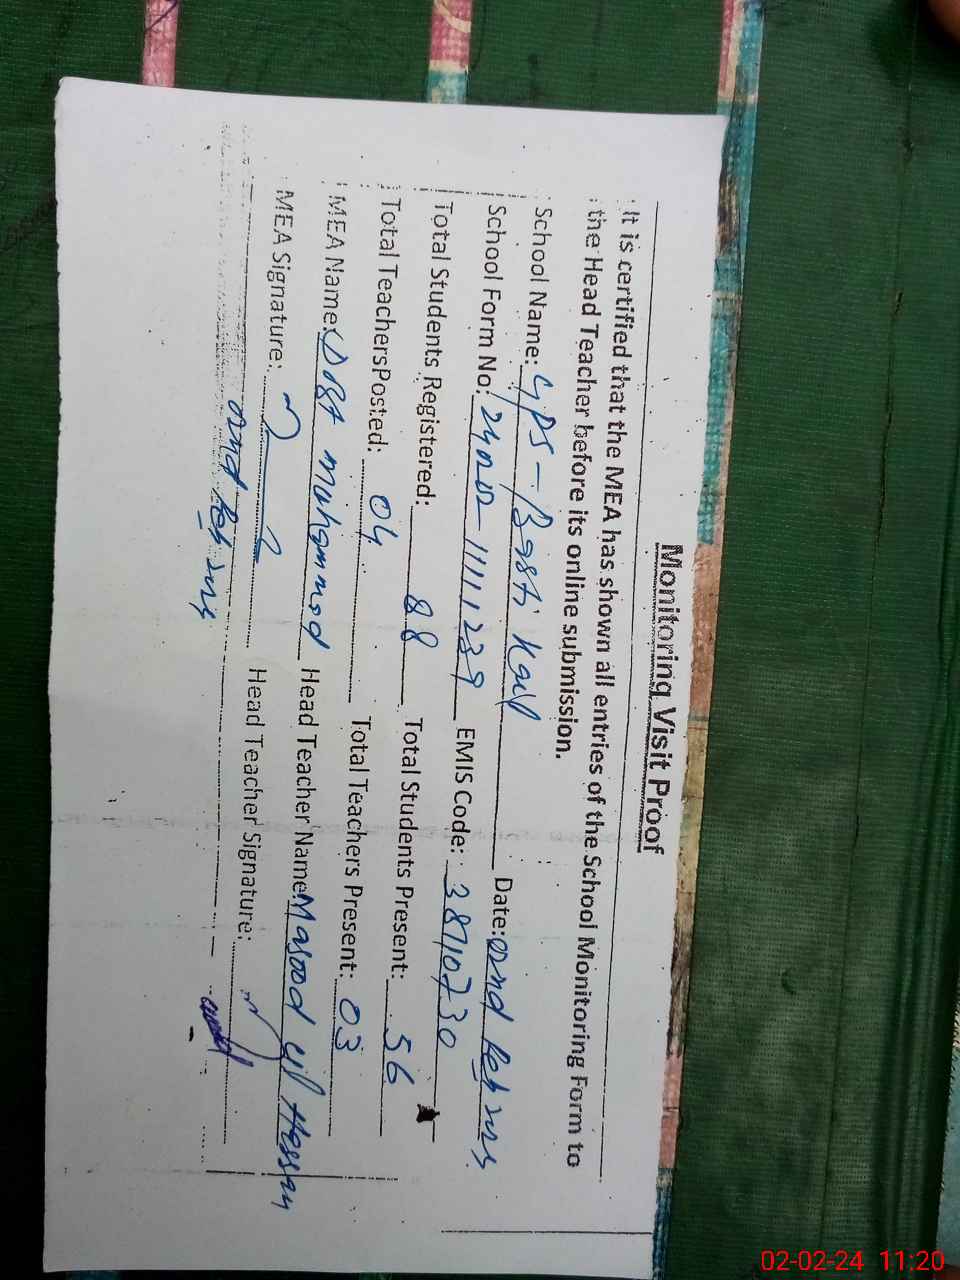 Monitoring Visit Proof
It is certified that the MEA has shown all entries of the School Monitoring Form to
the Head Teacher before its online submission.
School Name: GPS - Basti Date: 02nd Feb
School Form No: EMIS Code: 38710730
Total Students Registered: 88 Total Students Present: 56
Total Teachers Posted: 04 Total Teachers Present: 03
MEA Name: Dost Muhammad Head Teacher Name: Masood ul Hassan
MEA Signature: Head Teacher Signature:
02nd Feb
02-02-24 11:20